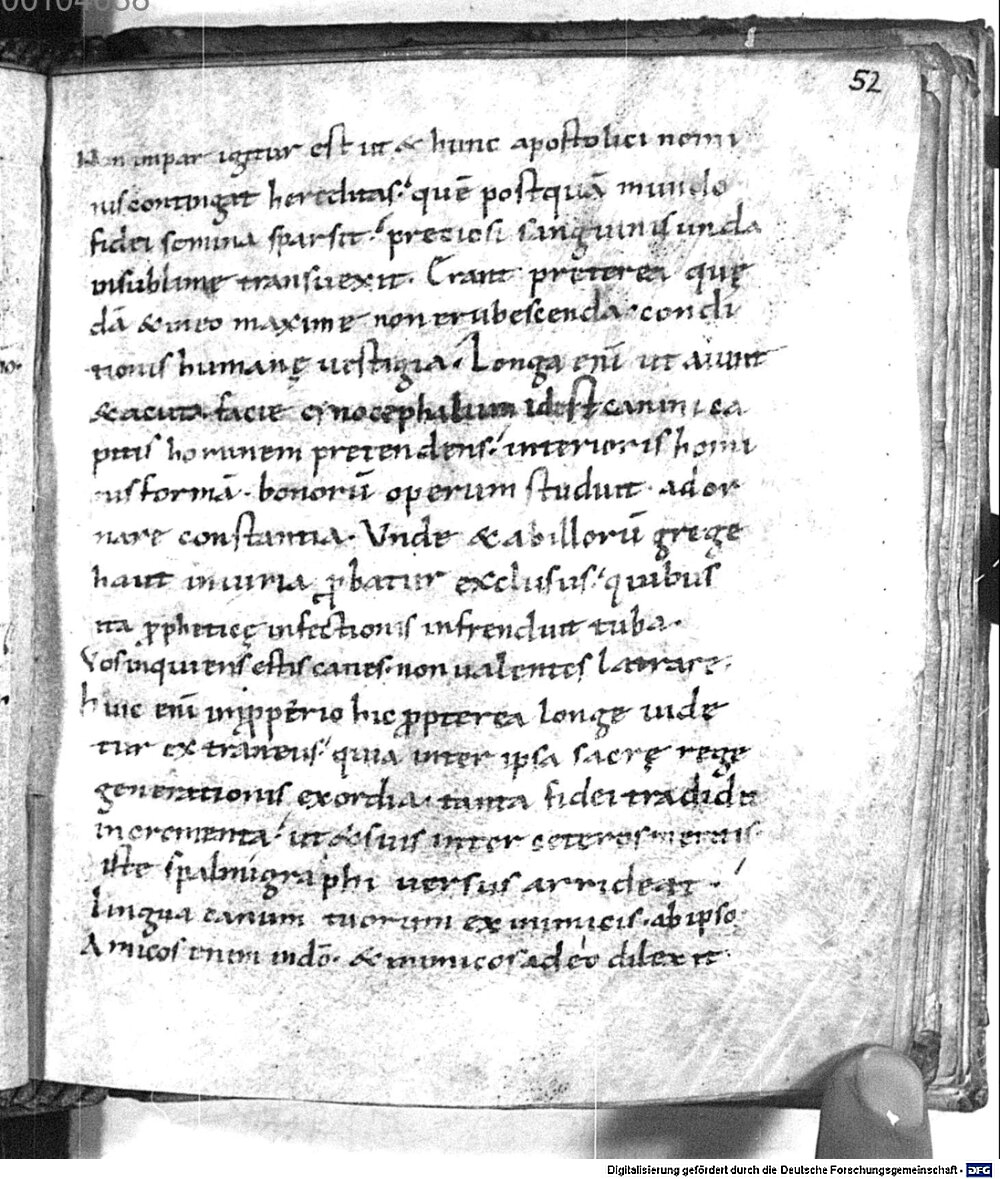 00104038
52
Non impar igitur est ut & hunc apostolici nomi
nis contingat hereditas. quẽ postquã mundo
fidei semina sparsit. preciosi sanguinis unda
in sublime transuexit. Erant preterea quę
dã & in eo maxime non erubescenda. condi
tionis humanę uestigia. Longa enĩ ut aiunt
& acuta facie cynocephalum id est canini ca
pitis hominem pretendens. interioris homi
nis formã. bonorũ operum studuit ador
nare constantia. Vnde & ab illorũ grege
haut iniuria ꝓbatur exclusus. quibus
ita ꝓpheticę infectionis infrenduit tuba.
Vos inquiens estis canes. non ualentes latrare.
huic enĩ inpropperio hic ꝓpterea longe uide
tur extraneus. quia inter ipsa sacrę rege
generationis exordia. tanta fidei tradidit
incrementa. ut & suis inter ceteros meritis
iste spalmigraphi uersus arrideat.
Lingua canum tuorum ex inimicis. ab ipso.
Amicos enim in dõ. & inimicos adeo dilexit
Digitalisierung gefördert durch die Deutsche Forschungsgemeinschaft - DFG